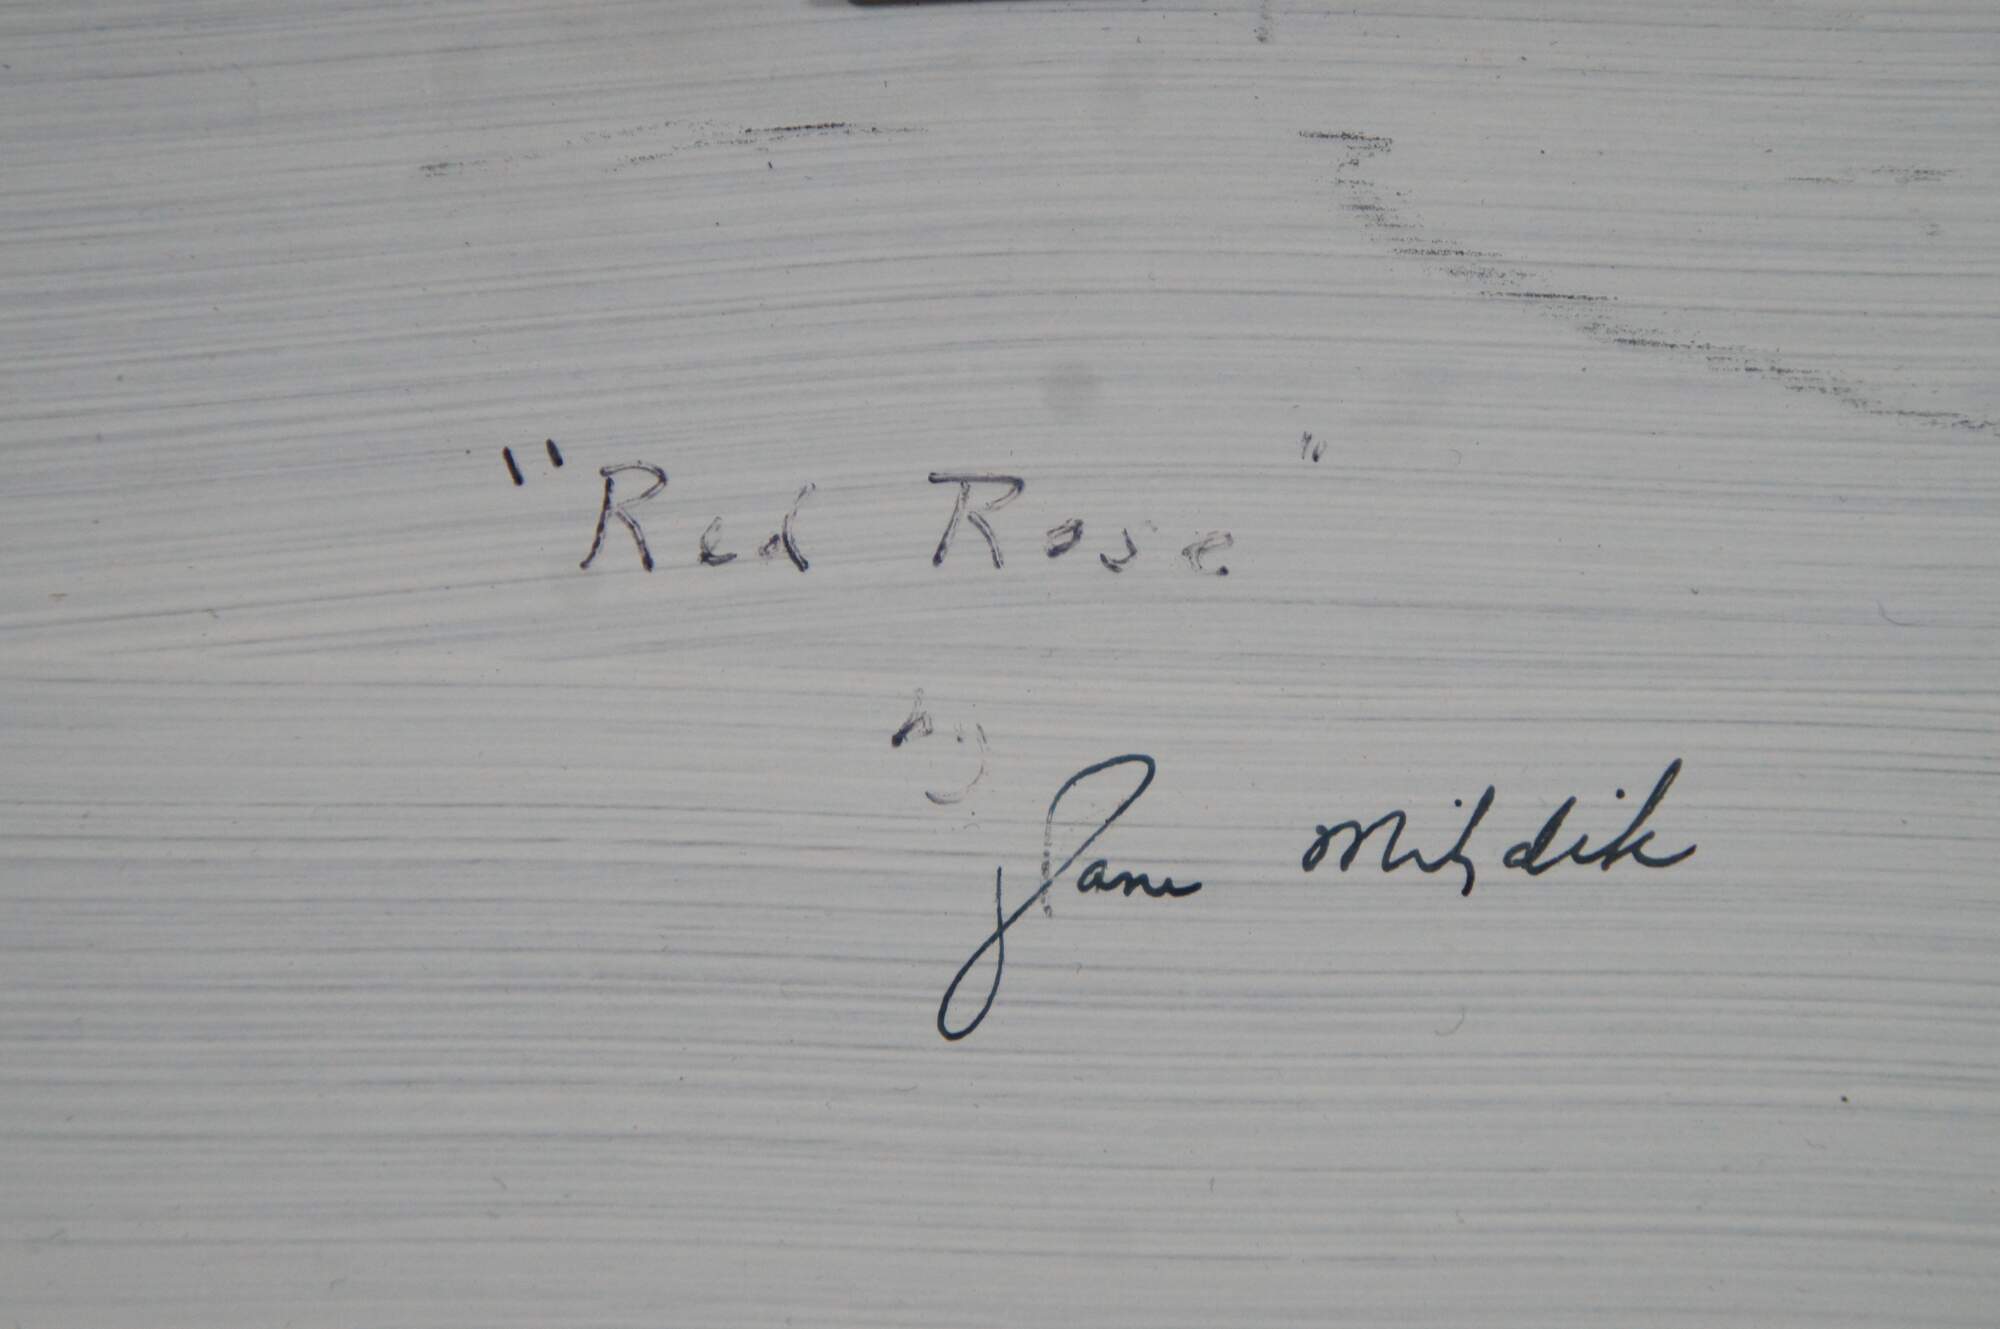 "Red Rose"
by
Jane Mihdik